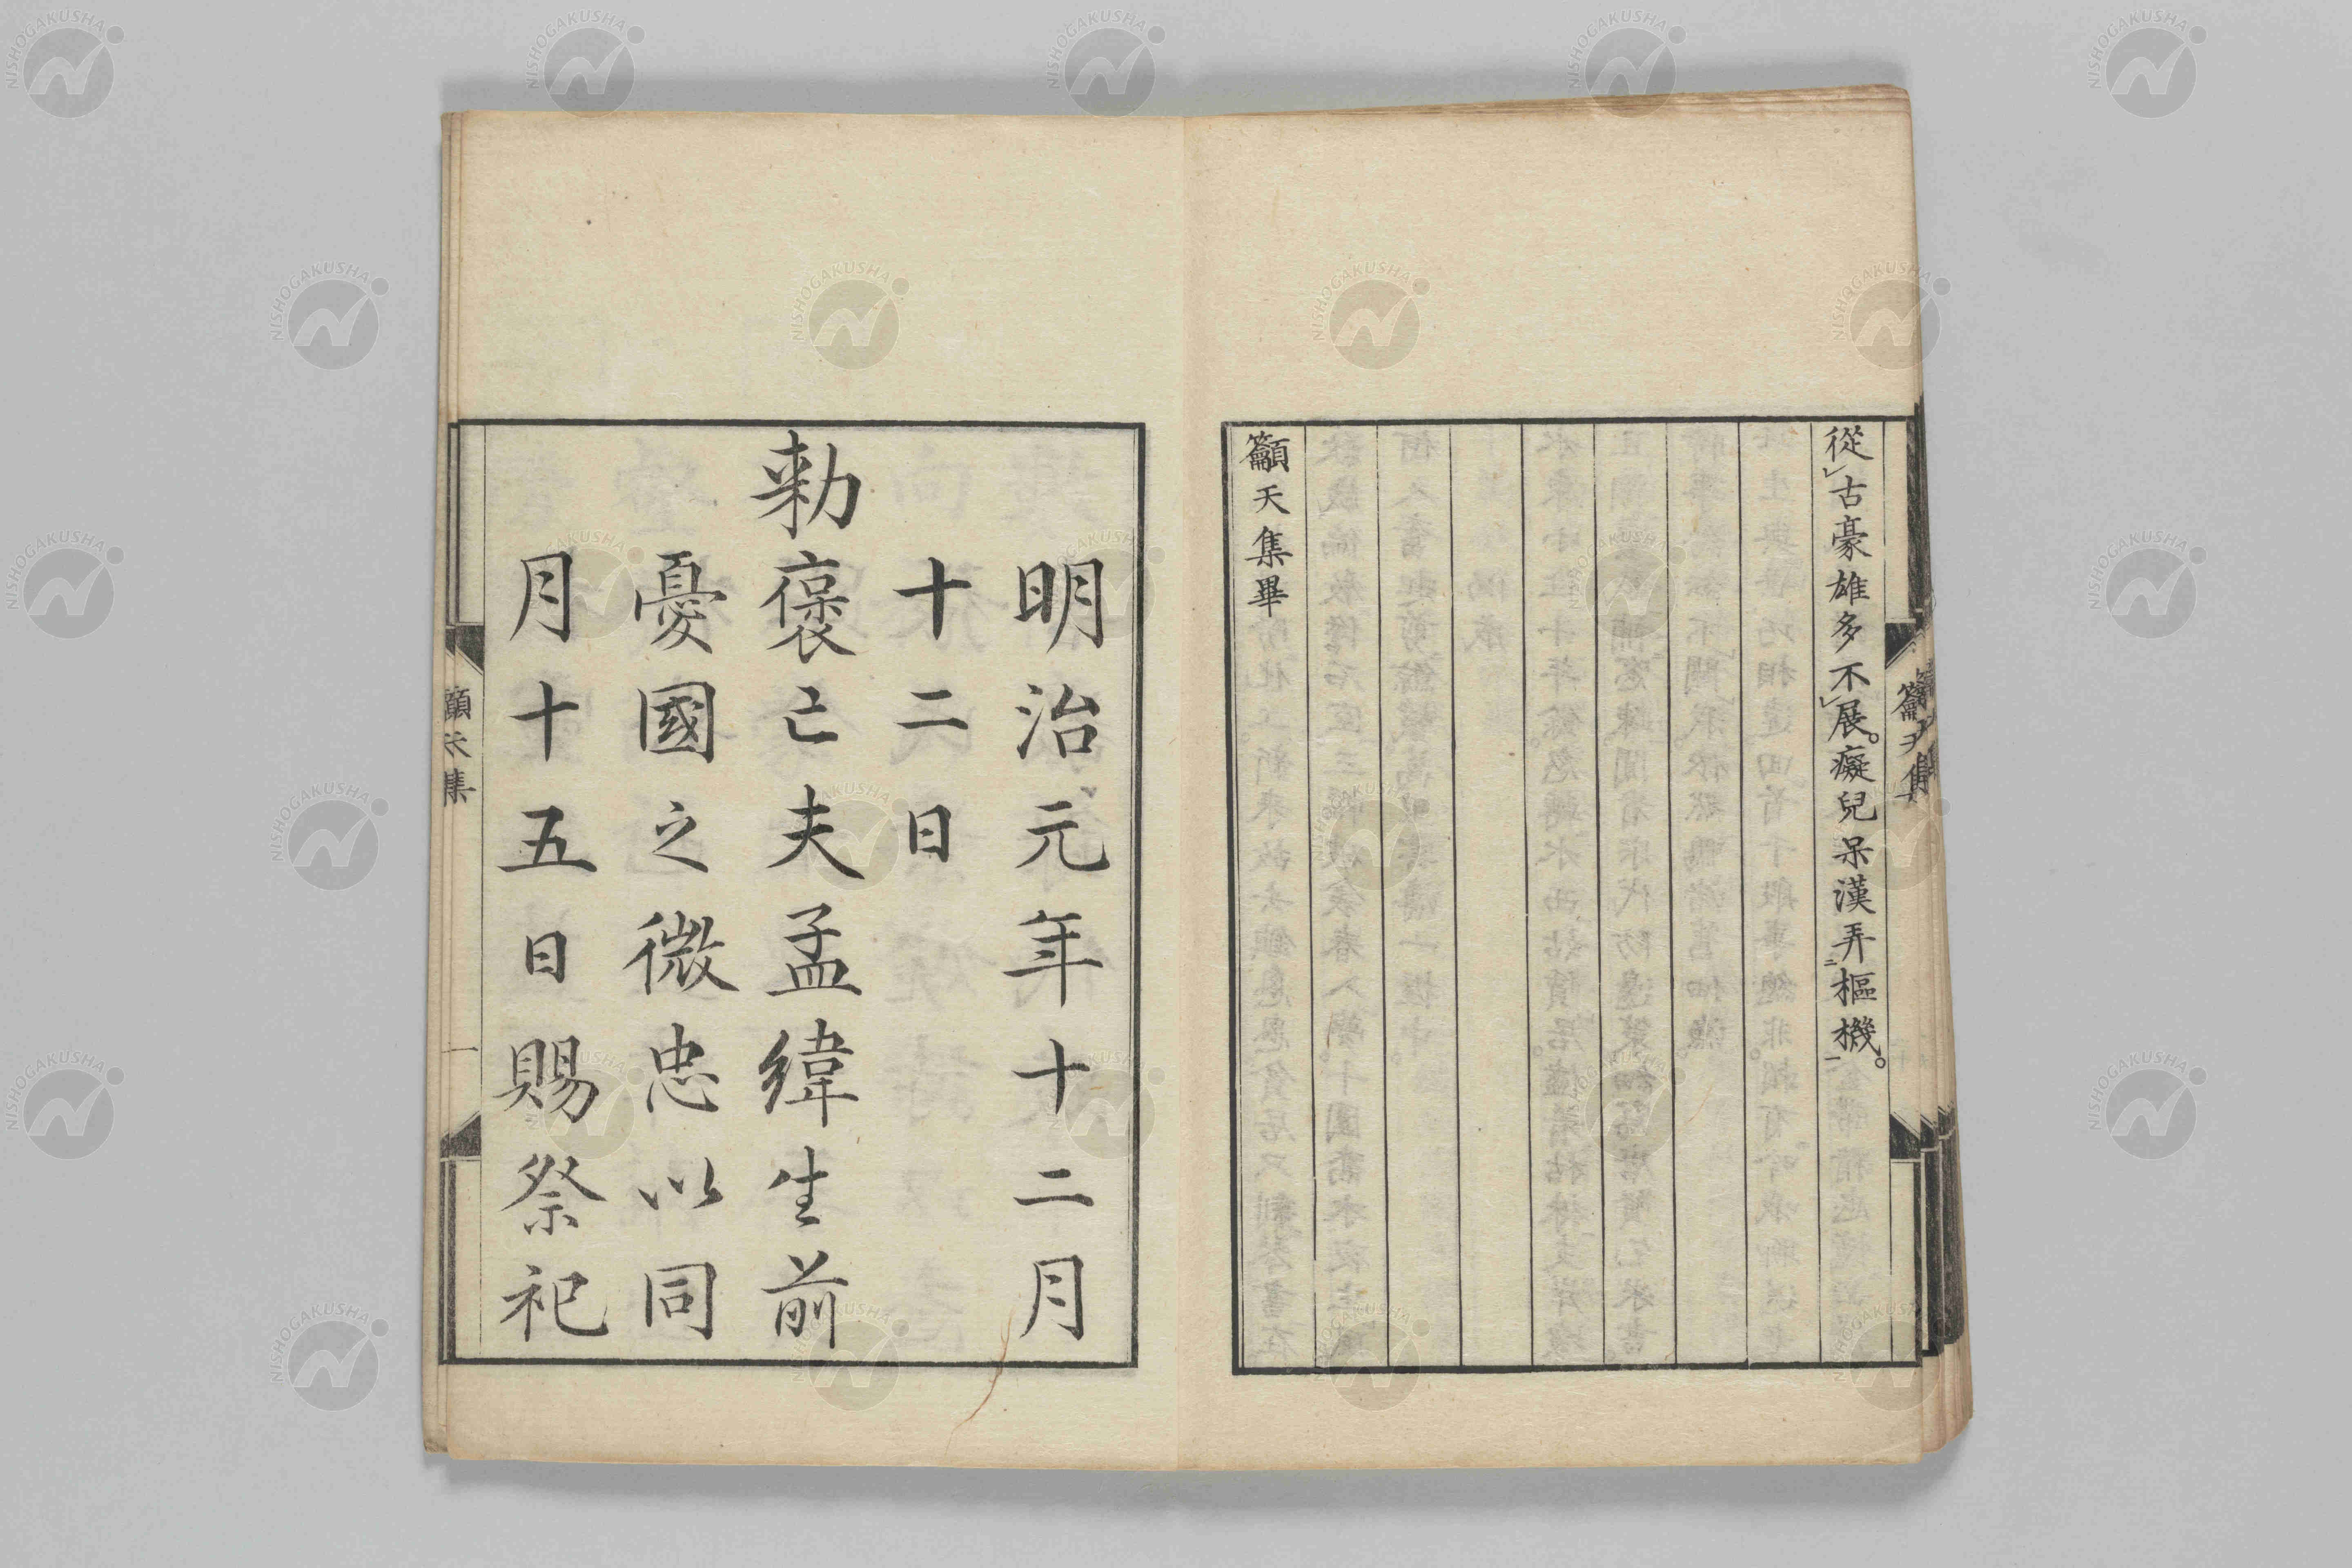 從古豪雄多不展。癡兒呆漢弄二樞機一。
籲天集畢
籲天集
明治元年十二月
十二日
勅褒亡夫孟緯生前
憂國之微忠以同
月十五日賜祭祀
籲天集
一
NISHOGAKUSHA